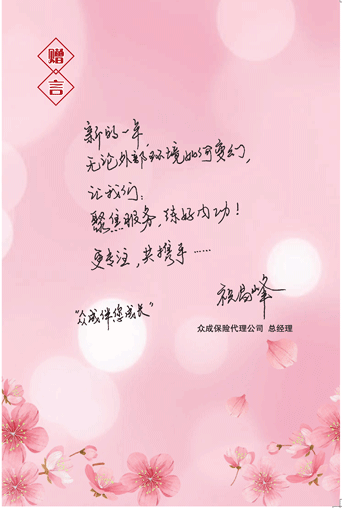 赠言
新的一年,
无论外部环境如何变幻,
让我们:
聚焦服务,练好内功!
更专注,共携手……
祝易峰
众成保险代理公司 总经理
“众成伴您成长”